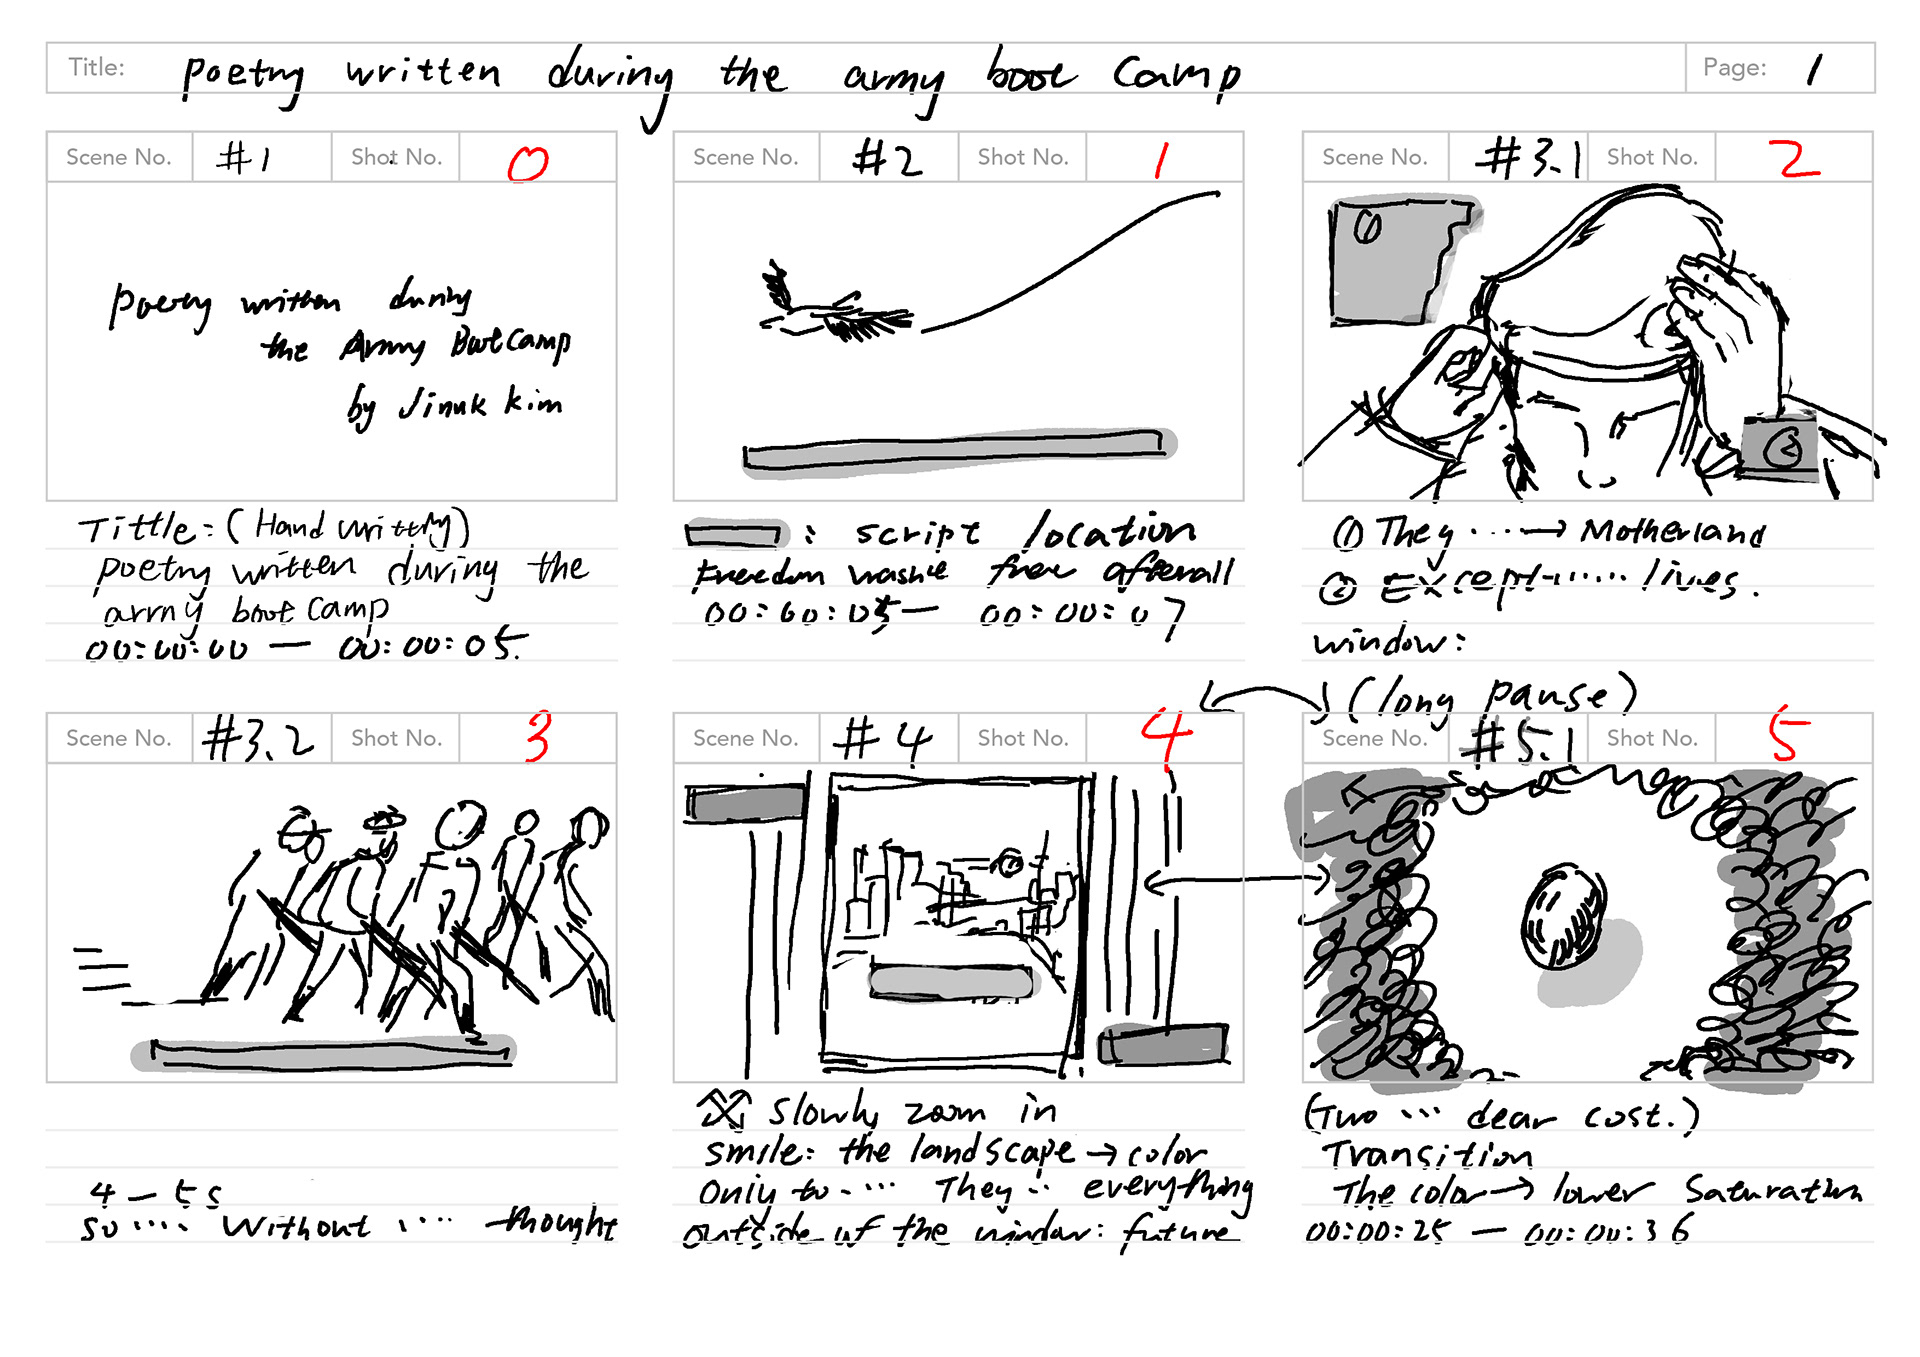 Title: poetry written during the army boot camp Page: 1
Scene No. #1 Shot No. 0
poetry written during
the Army Boot Camp
by Jinuk kim
Tittle: (Hand writtny)
poetry written during the
army boot camp
00:00:00 — 00:00:05.
Scene No. #2 Shot No. 1
: script location
Freedom wasnt free afterall
00:00:05 — 00:00:07
Scene No. #3.1 Shot No. 2
①
②
① They ····→ Motherland
② Except······ lives.
window:
(long pause)
Scene No. #3.2 Shot No. 3
4 — 5s
so ···· without ···· thought
Scene No. #4 Shot No. 4
slowly zoom in
smile: the landscape → color
Only to ···· They ·· everything
outside of the window: future
Scene No. #5.1 Shot No. 5
(Two ··· dear cost.)
Transition
The color → lower Saturation
00:00:25 — 00:00:36